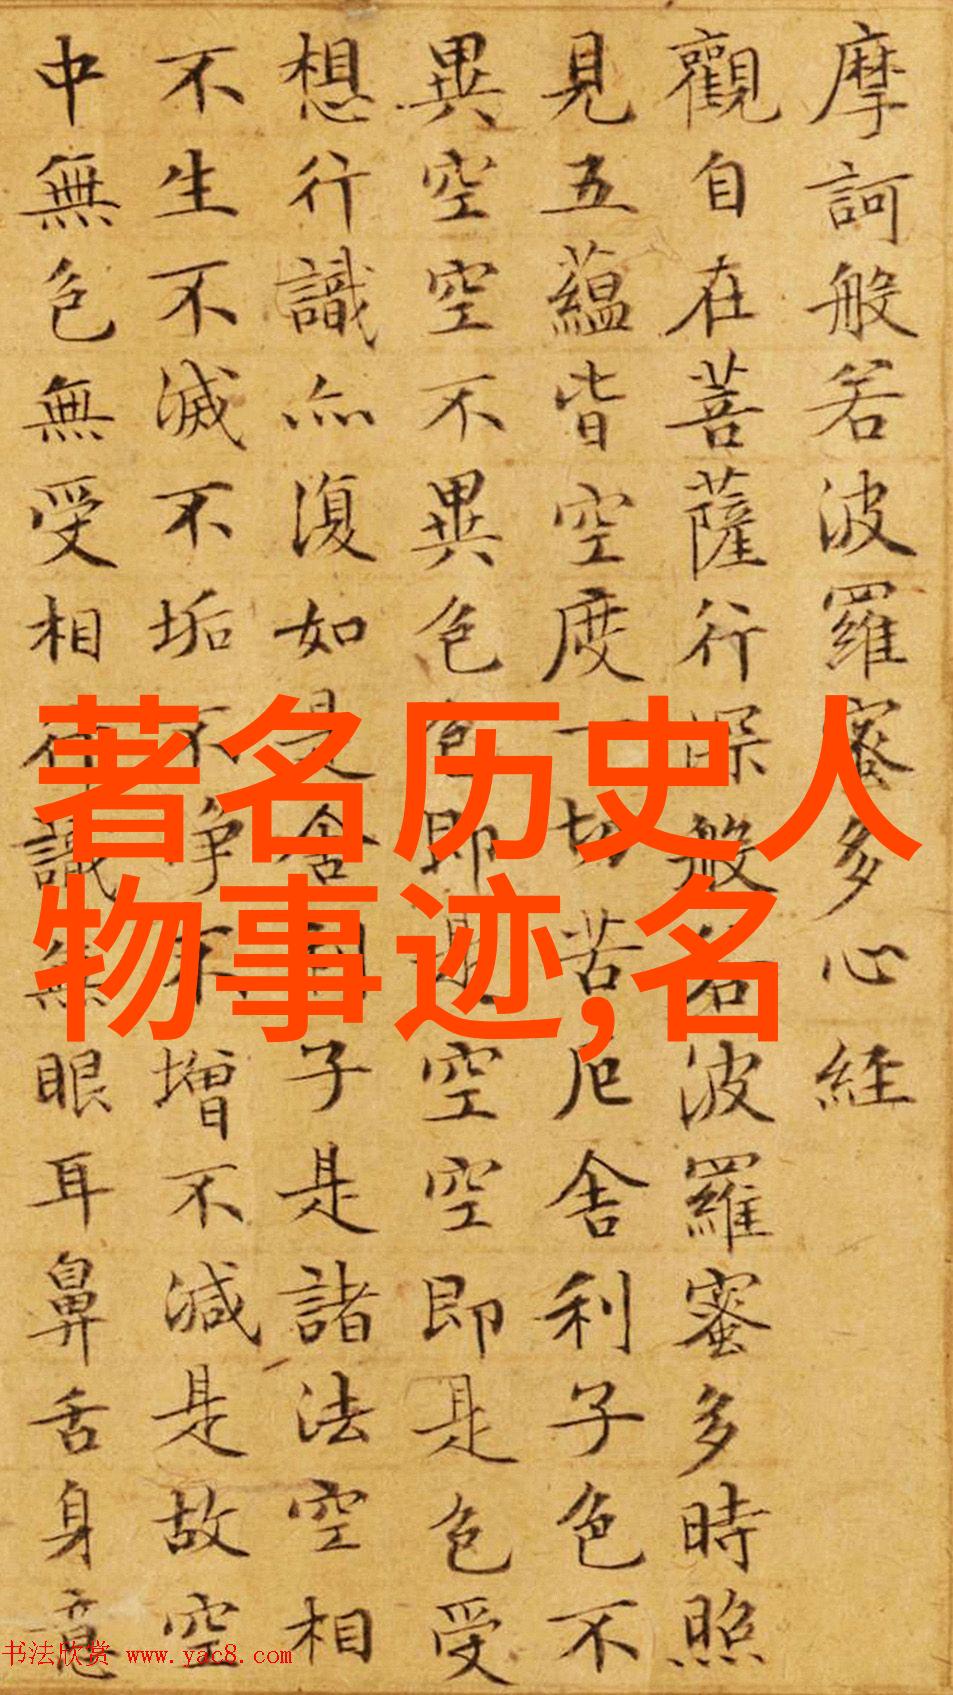 摩訶般若波羅蜜多心經
觀自在菩薩行深般若波羅蜜多時照
見五蘊皆空度一切苦厄舍利子色不
異空空不異色色即是空空即是色受
想行識亦復如是舍利子是諸法空相
不生不滅不垢不淨不增不減是故空
中無色無受相行識無眼耳鼻舌身意
著名历史人
物事迹,名
书法欣赏 www.yac8.com